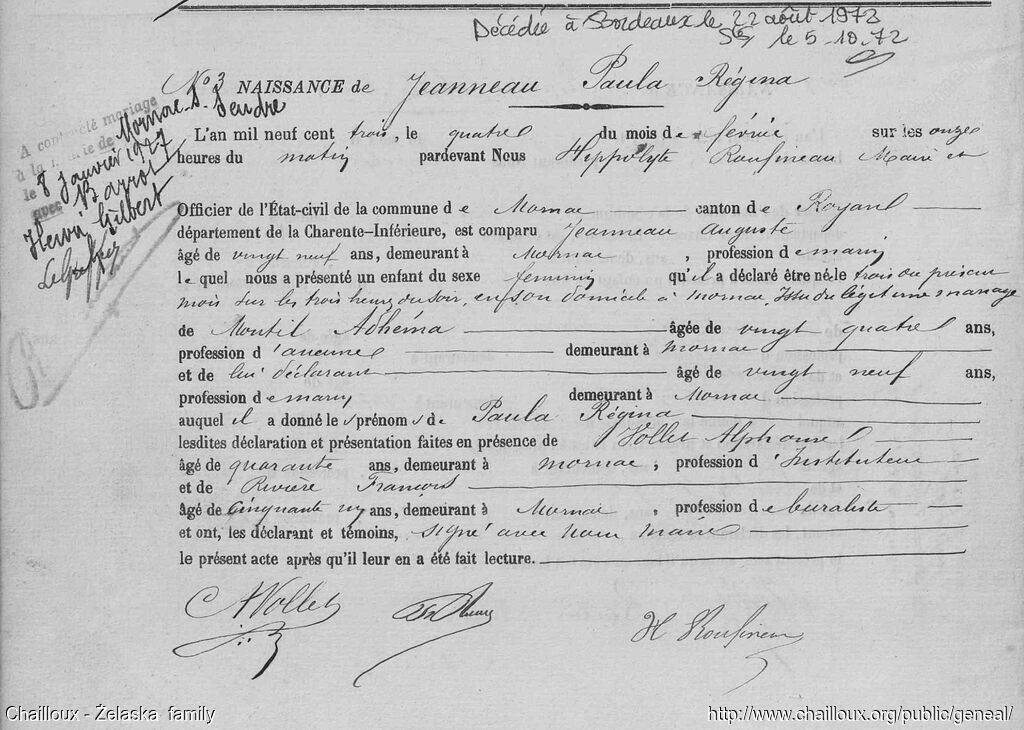 Décédée à Bordeaux le 22 août 1972
le 5-10-72
N° 3 NAISSANCE de Jeanneau Paula Régina
A contracté mariage
à la mairie de Mornac-s-Seudre
le 8 janvier 1927
avec Barrot
Hervé Gilbert
Le Greffier
L'an mil neuf cent trois, le quatre du mois de février sur les onze
heures du matin pardevant Nous Hippolyte Roufineau Maire et
Officier de l'État-civil de la commune de Mornac canton de Royan
département de la Charente-Inférieure, est comparu Jeanneau Auguste
âgé de vingt neuf ans, demeurant à Mornac, profession de marin
lequel nous a présenté un enfant du sexe féminin qu'il a déclaré être né le trois du présent
mois sur les trois heures du soir, en son domicile à Mornac, issu du légitime mariage
de Montil Adhéma âgée de vingt quatre ans,
profession d'aucune demeurant à Mornac
et de lui déclarant âgé de vingt neuf ans,
profession de marin demeurant à Mornac
auquel il a donné les prénoms de Paula Régina
lesdites déclaration et présentation faites en présence de Vollet Alphonse
âgé de quarante ans, demeurant à mornac, profession d'Instituteur
et de Rivière François
âgé de cinquante un ans, demeurant à Mornac, profession de buraliste
et ont, les déclarant et témoins, signé avec nous maire
le présent acte après qu'il leur en a été fait lecture.
A Vollet
H Roufineau
Chailloux - Żelaska family
http://www.chailloux.org/public/geneal/